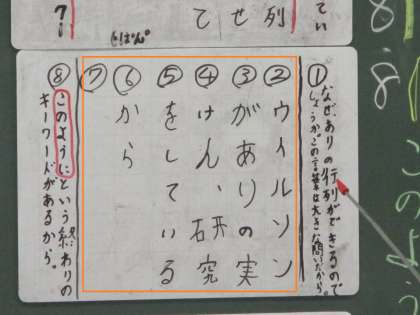 てい
列
せ
て
?
①
なぜ、ありの行列ができるので
しょうか。この言葉は大きな問いだから。
②ウイルソン
③がありの実
④けん、研究
⑤をしている
⑥から
⑦
⑧
このようにという終わりの
キーワードがあるから。
8.8